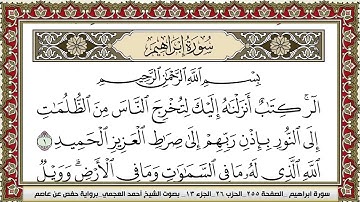 سُورَةُ إِبْرَاهِيمَ
بِسْمِ اللَّهِ الرَّحْمَٰنِ الرَّحِيمِ
الٓر ۚ كِتَٰبٌ أَنزَلْنَٰهُ إِلَيْكَ لِتُخْرِجَ النَّاسَ مِنَ الظُّلُمَٰتِ
إِلَى النُّورِ بِإِذْنِ رَبِّهِمْ إِلَىٰ صِرَٰطِ الْعَزِيزِ الْحَمِيدِ ١
اللَّهِ الَّذِي لَهُ مَا فِي السَّمَٰوَٰتِ وَمَا فِي الْأَرْضِ ۗ وَوَيْلٌ
سورة ابراهيم _الصفحة ٢٥٥_الحزب ٢٦_الجزء ١٣ _ بصوت الشيخ أحمد العجمي_برواية حفص عن عاصم